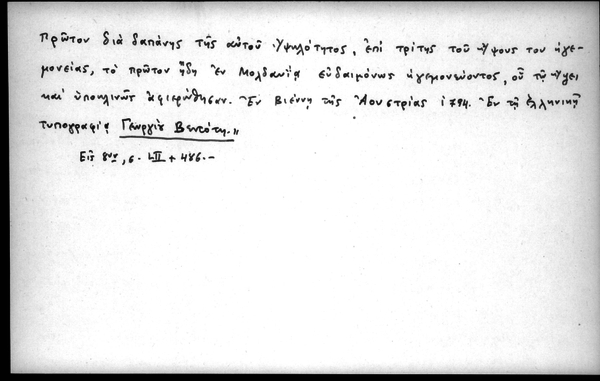 Πρῶτον διὰ δαπάνης τῆς αὐτοῦ Ὑψηλότητος, ἐπὶ τρίτης τοῦ Ὕψους του ἡγε-
μονείας, τὸ πρῶτον ἤδη ἐν Μολδανίᾳ εὐδαιμόνως ἡγεμονεύοντος, οὗ τῷ ὕψει
καὶ ὑποκλινῶς ἀφιερώθησαν. Ἐν Βιέννῃ τῆς Ἀουστρίας 1794. Ἐν τῇ ἑλληνικῇ
τυπογραφίᾳ Γεωργίου Βεντότη."
Εἰς 8ον, σ. LII + 486.-